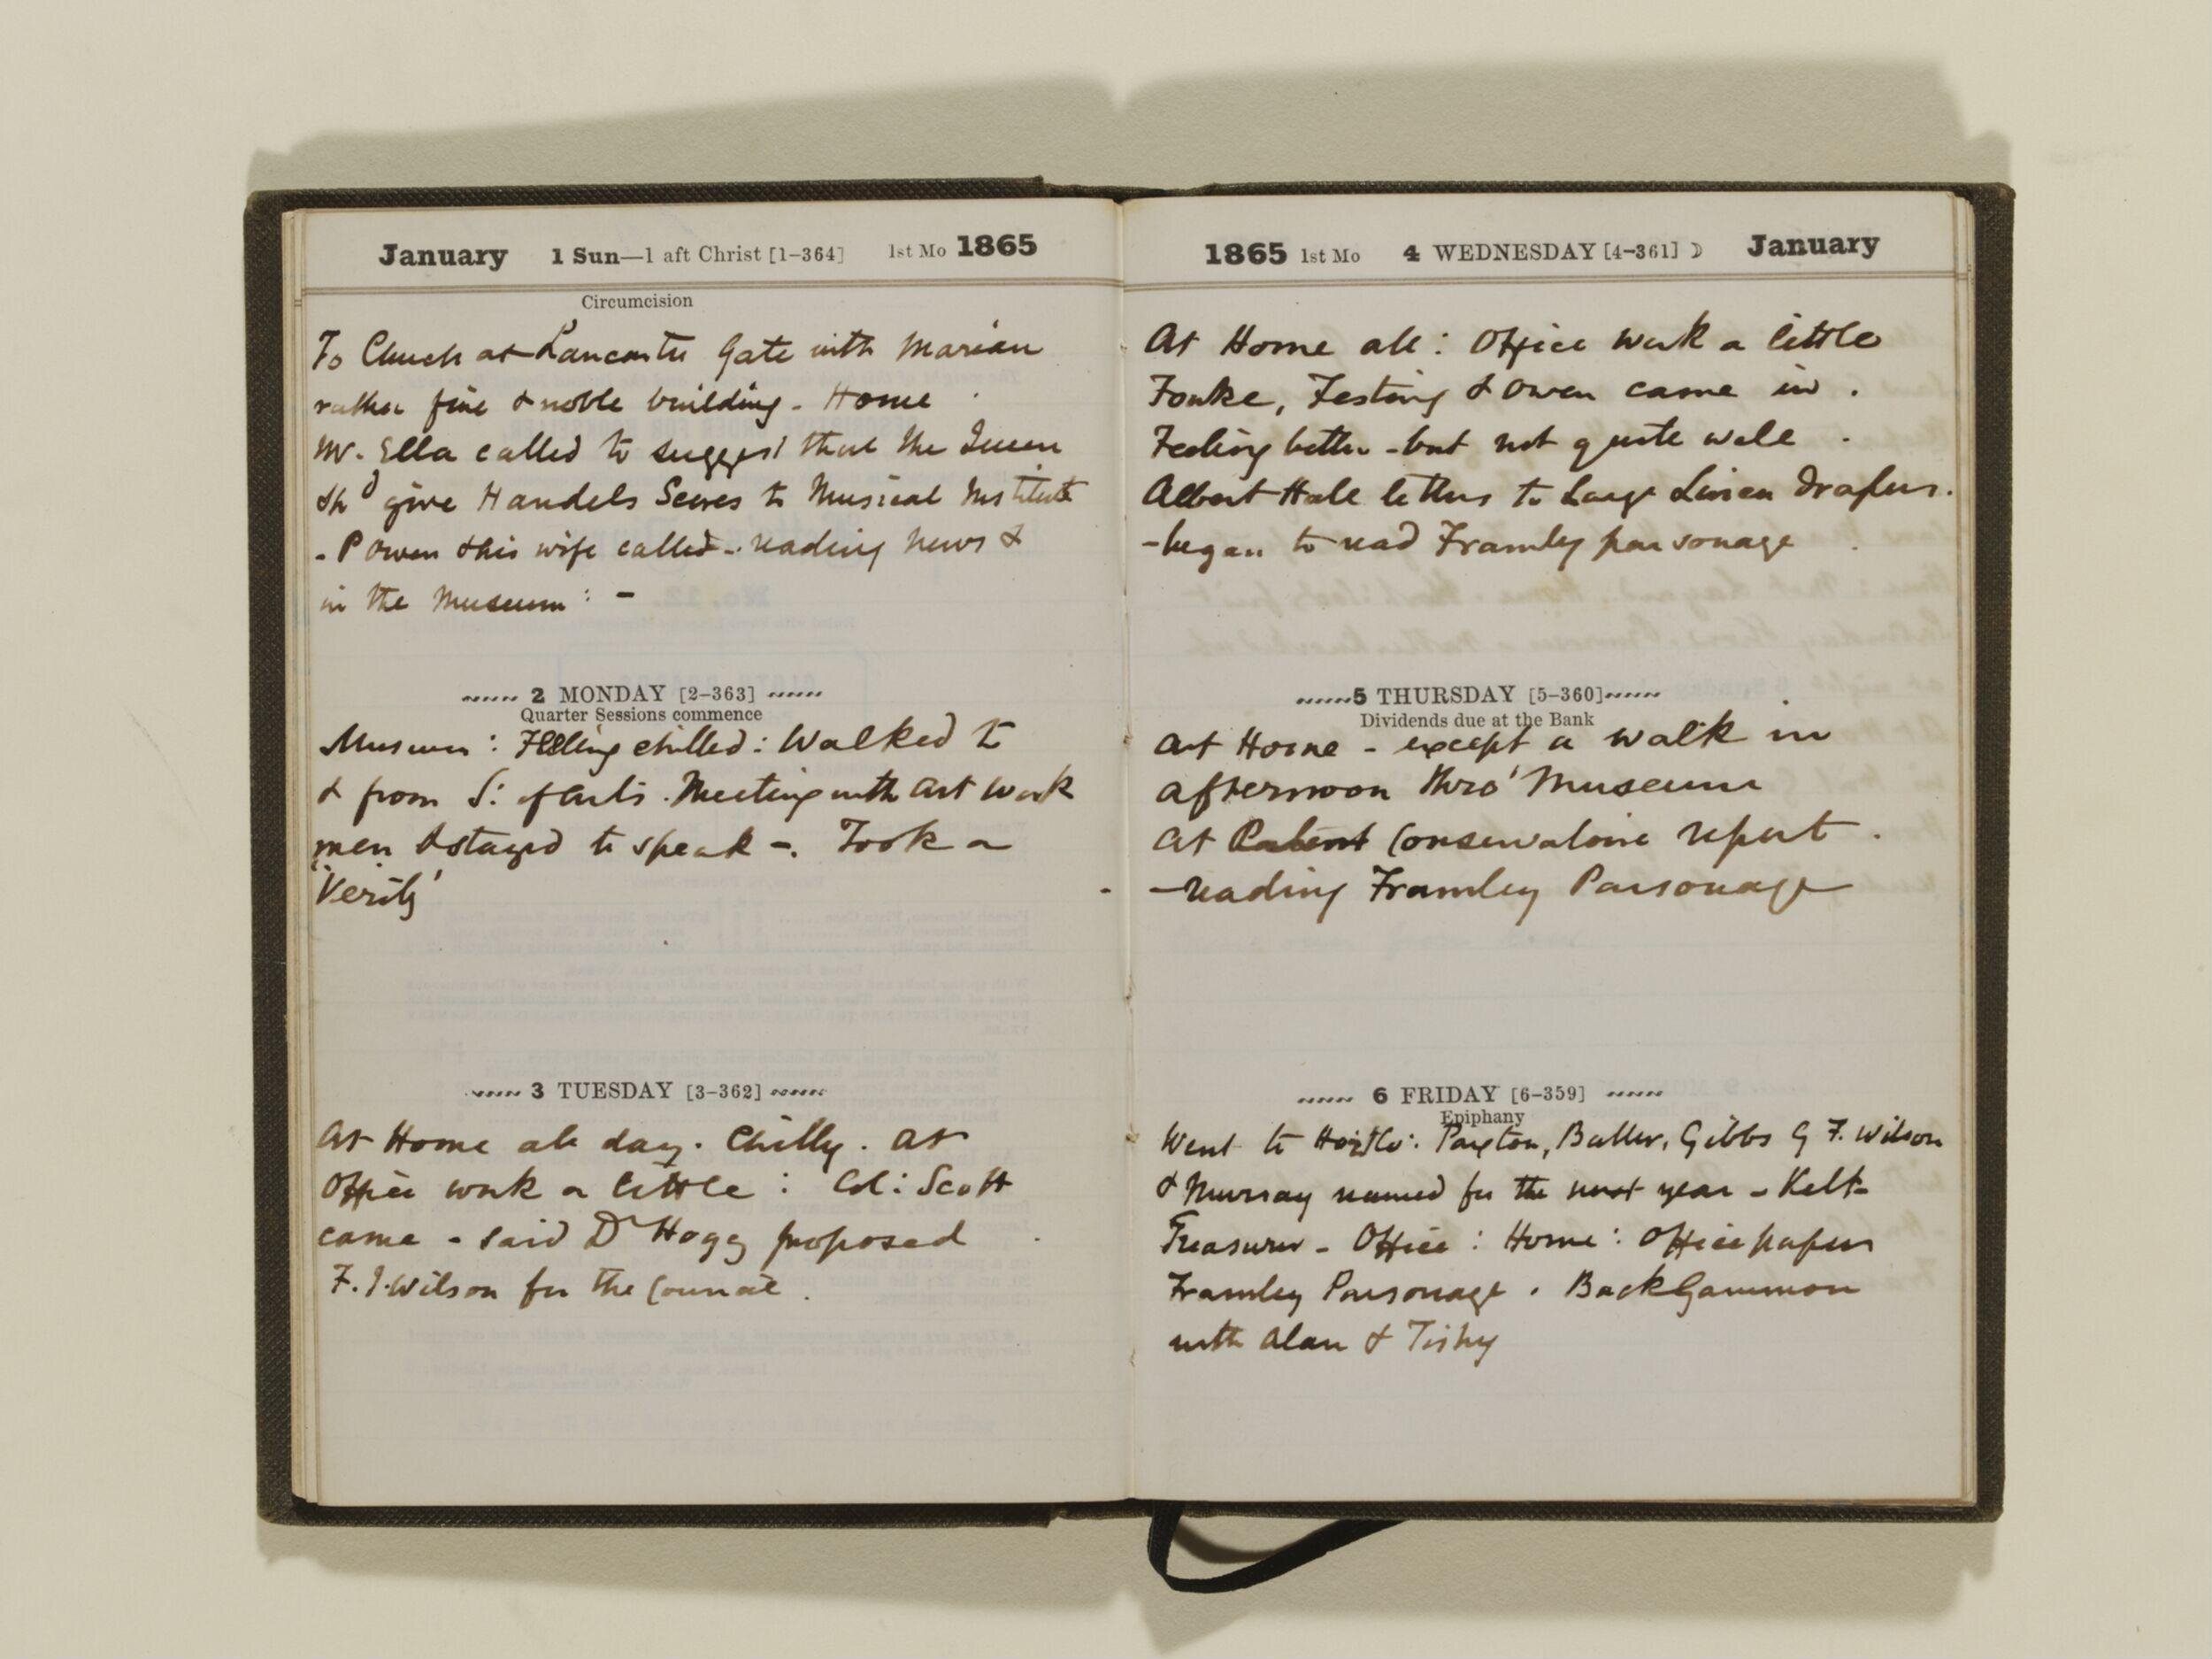 January 1 Sun—1 aft Christ [1-364] 1st Mo 1865
Circumcision
To Church at Lancaster Gate with Marian
rather fine & noble building - Home
Mr. Ella called to suggest that the Queen
shd give Handels Scores to Musical Institute
- P Owen & his wife called - reading news &
in the Museum : -
2 MONDAY [2-363]
Quarter Sessions commence
Museum : Feeling chilled : Walked to
& from S: of Arts . Meeting with Art Work
men & stayed to speak -. Took a
'Verity'
3 TUESDAY [3-362]
At Home all day. Chilly. at
Office work a little : Col: Scott
came - said Dr Hogg proposed
F. Wilson for the Council.
1865 1st Mo 4 WEDNESDAY [4-361] ☽ January
At Home all : Office work a little
Fowke, Festing & Owen came in .
Feeling better - but not quite well .
Albert Hall letters to Large Linen Drapers.
- began to read Framley parsonage
5 THURSDAY [5-360]
Dividends due at the Bank
At Home - except a walk in
afternoon thro' Museum
at Patent Conservatoire report .
- reading Framley Parsonage
6 FRIDAY [6-359]
Epiphany
Went to : Paxton, Butler, Gibbs G F. Wilson
& Murray named for the next year - Kelk
Treasurer - Office : Home : Office papers
Framley Parsonage . BackGammon
with Alan & Tishy